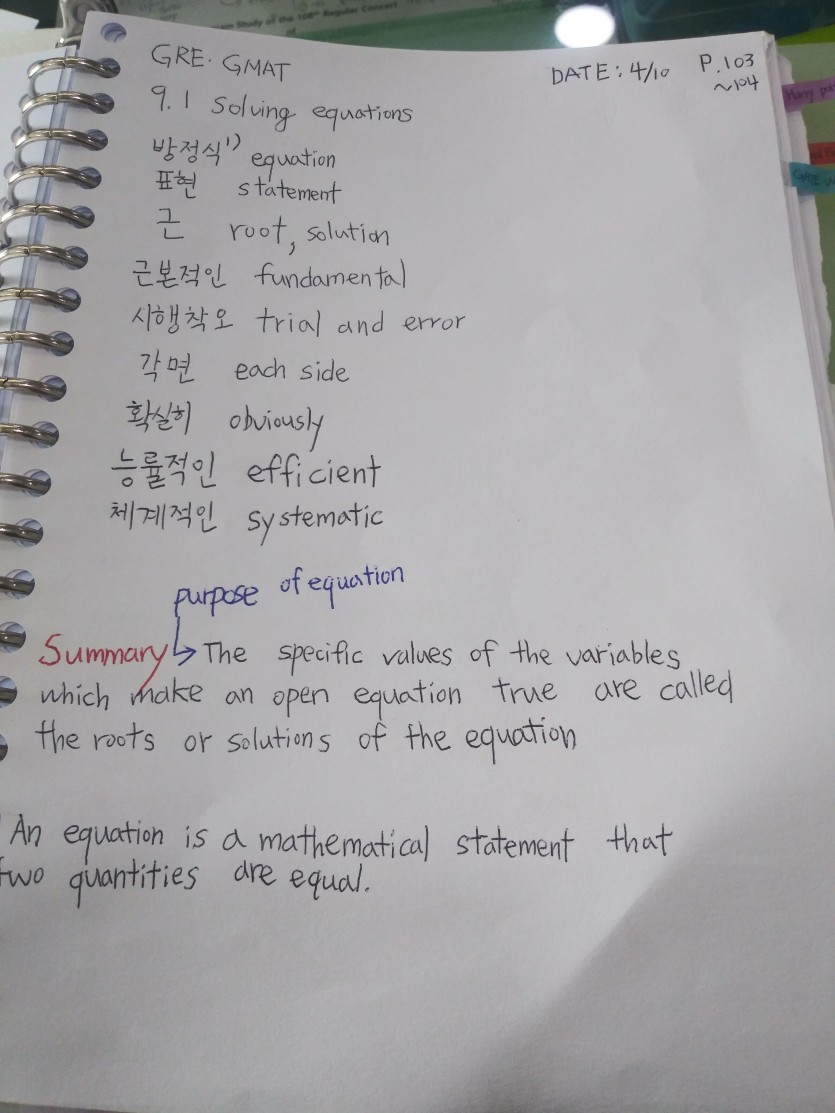 am Study of the 108th Regular Concert
GRE. GMAT
DATE: 4/10 P.103
~104
9.1 Solving equations
방정식1) equation
표현 statement
근 root, solution
근본적인 fundamental
시행착오 trial and error
각면 each side
확실히 obviously
능률적인 efficient
체계적인 systematic
purpose of equation
Summary ↳ The specific values of the variables
which make an open equation true are called
the roots or solutions of the equation
An equation is a mathematical statement that
two quantities are equal.